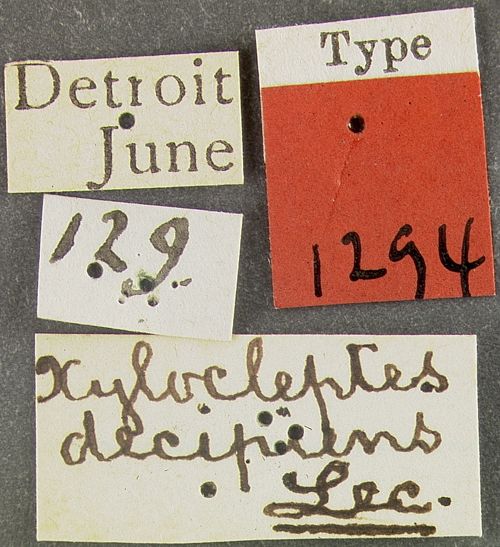 Detroit
June
Type
1294
129.
Xylocleptes
decipiens
Lec.